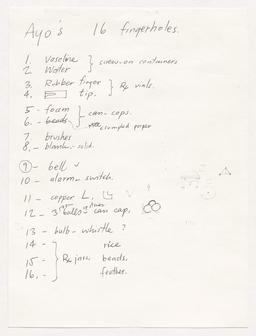 Ayo's 16 fingerholes.
1. Vaseline } screw-on containers
2. Water
3. Rubber finger } Rx vials.
4. tip.
5 - foam } can-caps.
6. - beads crumpled paper
7. brushes
8. - blank - solid.
9 - bell
10 - alarm - switch.
11 - copper L.
12 - 3 balls can cap.
13 - bulb - whistle ?
14 - rice
15 - } Rx jars. beads.
16. - feather.